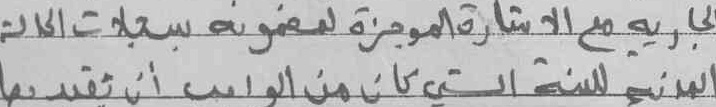 الجارية مع الاشارة الموجزة لمضمونه بسجلات الحالة
المدنية للسنة التي كان من الواجب أن تقيد بها